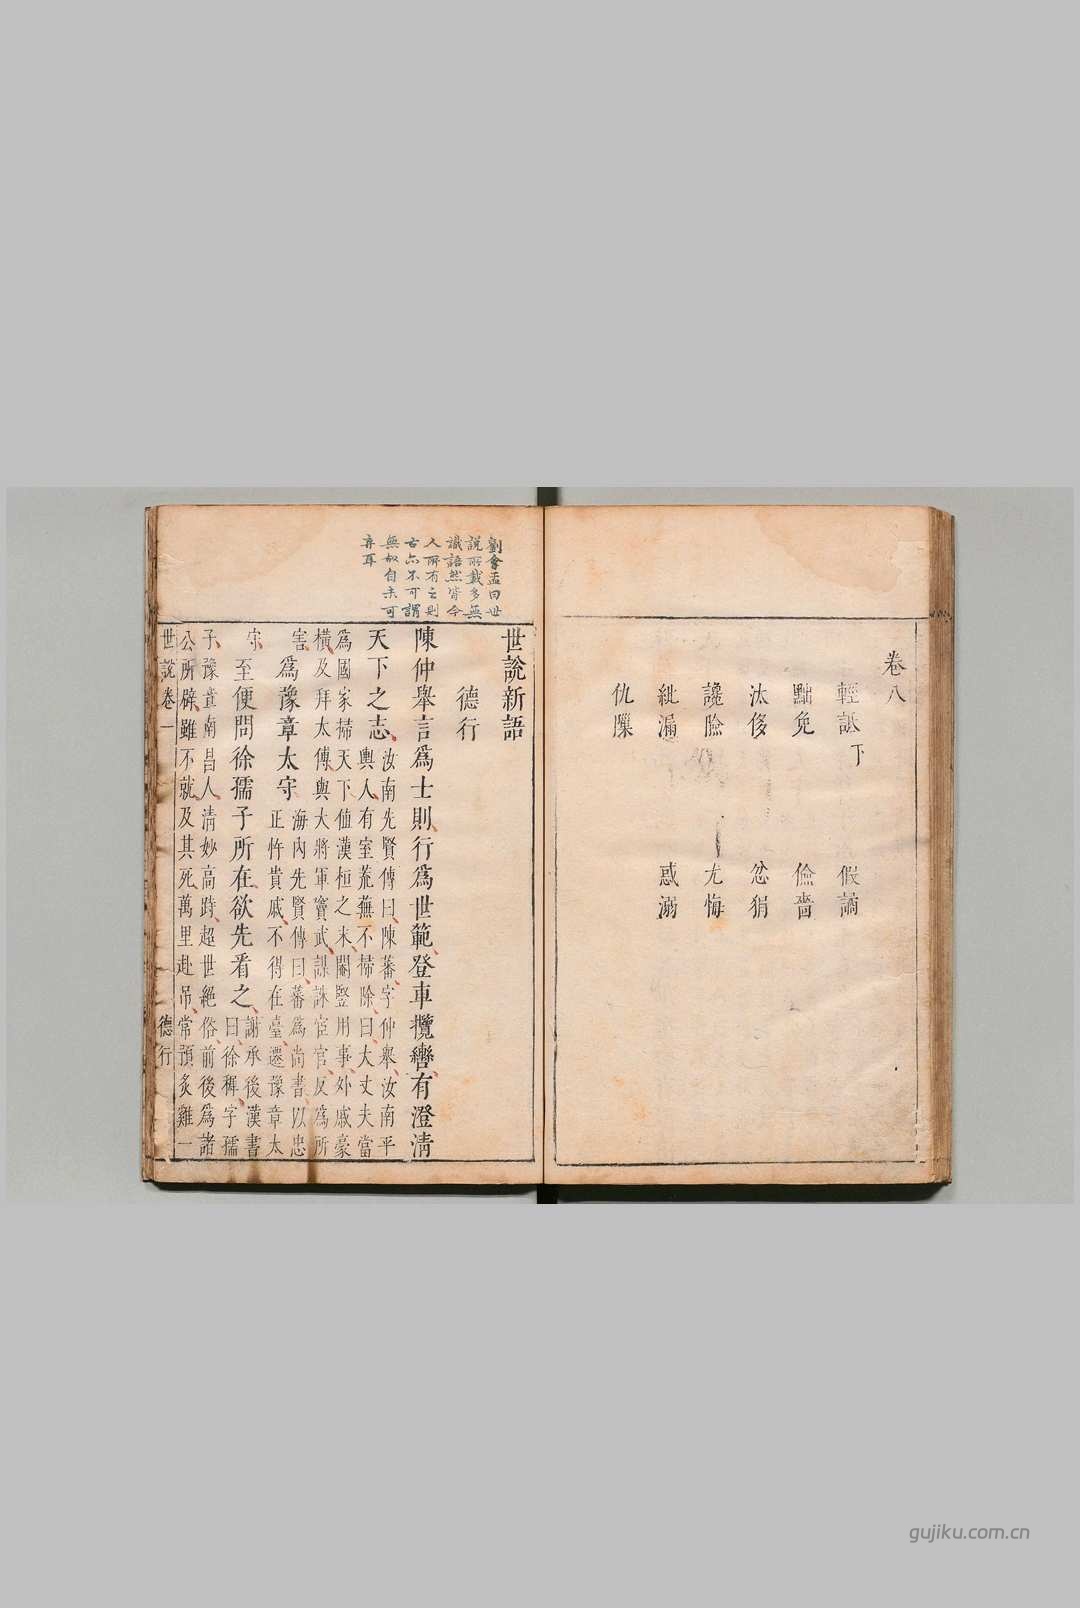 卷八
輕詆下　假譎
黜免　儉嗇
汰侈　忿狷
讒險　尤悔
紕漏　惑溺
仇隟
劉會孟曰世
說所載多無
識語然皆今
人所有之則
古亦不可謂
無如自未可
弃耳
世說新語
德行
陳仲舉言爲士則行爲世範登車攬轡有澄清
天下之志
汝南先賢傳曰陳蕃字仲舉汝南平
輿人有室荒蕪不掃除曰大丈夫當
爲國家掃天下値漢桓之末閹豎用事外戚豪
橫及拜太傅與大將軍竇武謀誅宦官反爲所
害
爲豫章太守
海內先賢傳曰蕃爲尚書以忠
正忤貴戚不得在臺遷豫章太
守
至便問徐孺子所在欲先看之
謝承後漢書
曰徐穉字孺
子豫章南昌人清妙高跱超世絕俗前後爲諸
公所辟雖不就及其死萬里赴吊常預炙雞一
世說卷一　德行
gujiku.com.cn